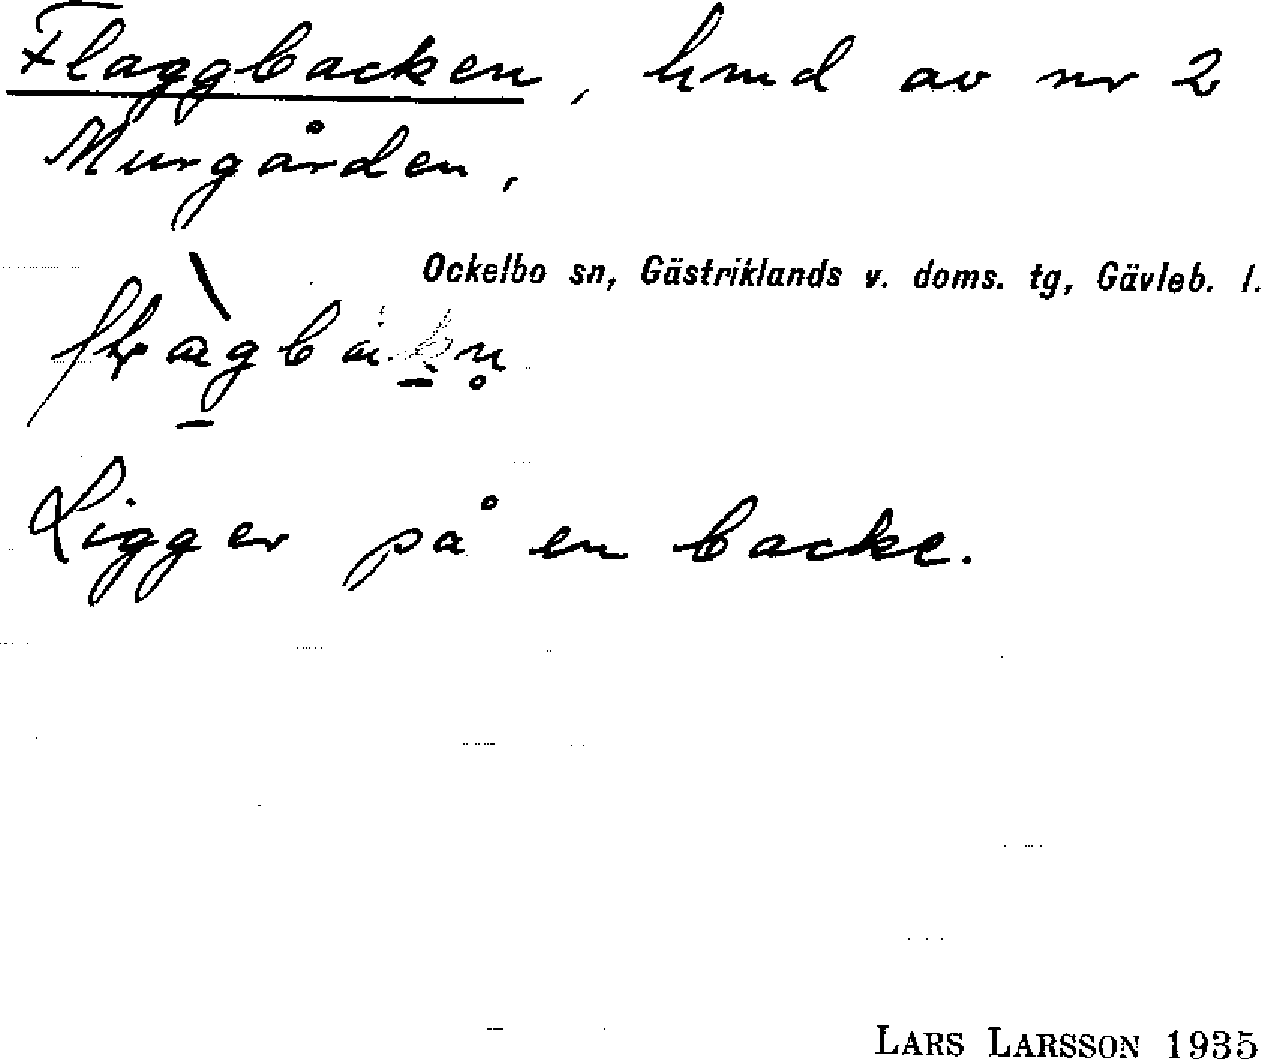 Flaggbacken, hmd av nr 2
Murgården,
Ockelbo sn, Gästriklands v. doms. tg, Gävleb. l.
Ligger på en backe.
LARS LARSSON 1935